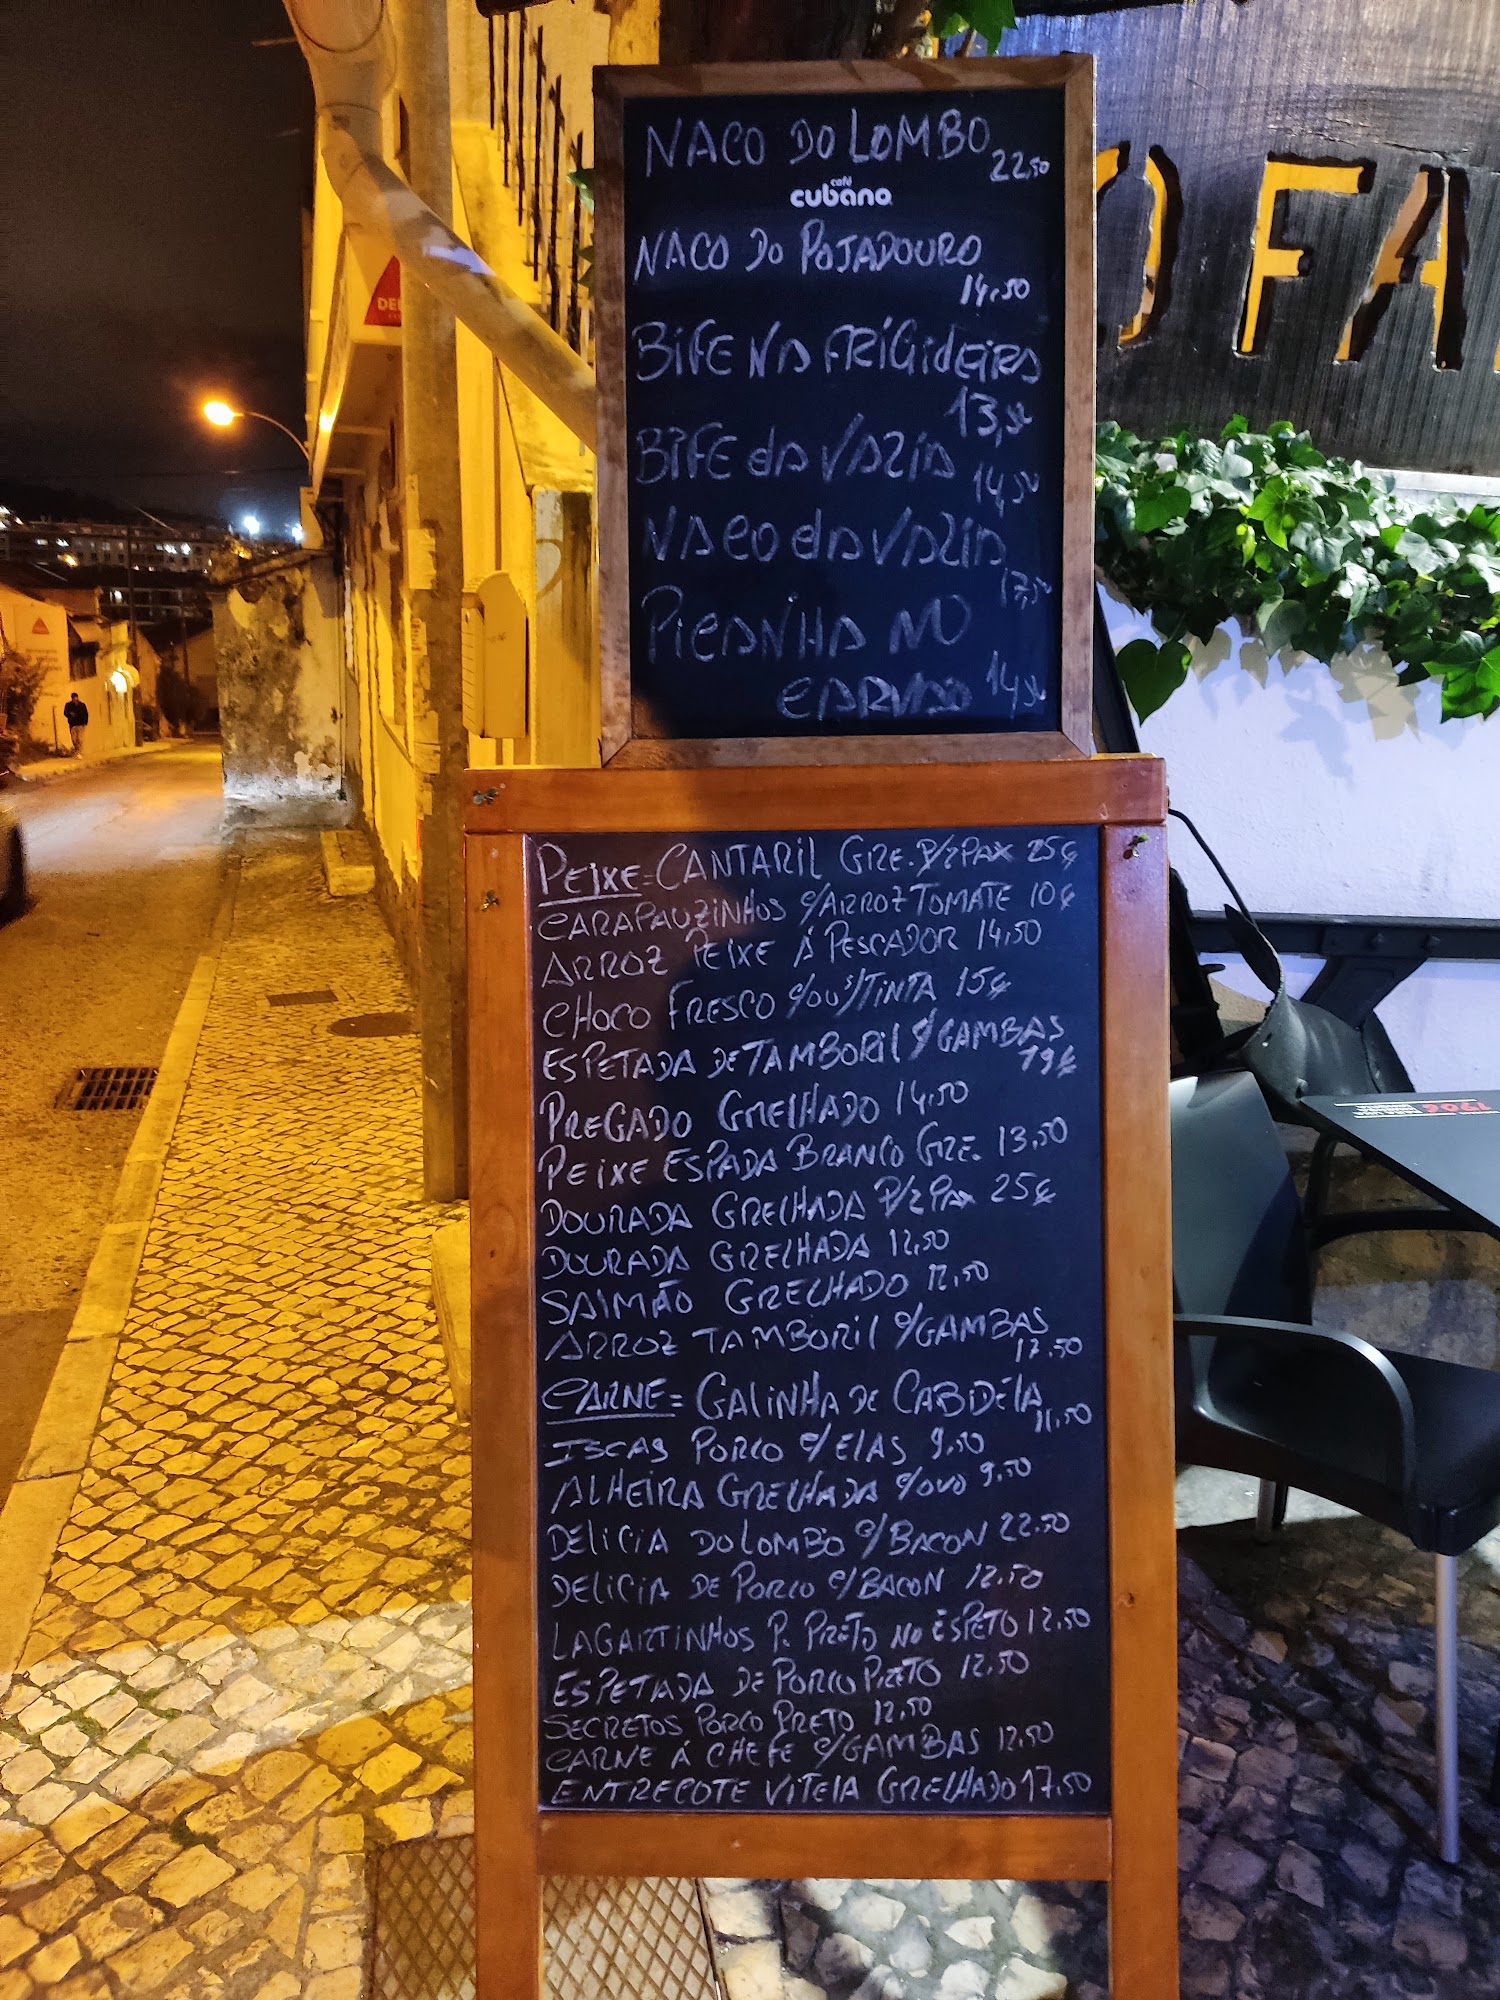 NACO DO LOMBO
22,50
café
cubano
NACO DO POJADOURO
14,50
BIFE NA FRIGIDEIRA
13,50
BIFE DA VAZIA
14,50
NACO DA VAZIA
17,50
PICANHA NO
CARVÃO 14,50
OFA
PEIXE = CANTARIL GRE. P/2 PAX 25€
CARAPAUZINHOS C/ARROZ TOMATE 10€
ARROZ PEIXE Á PESCADOR 14,50
CHOCO FRESCO C/OU S/TINTA 15€
ESPETADA DE TAMBORIL C/GAMBAS
19€
PREGADO GRELHADO 14,50
PEIXE ESPADA BRANCO GRE. 13,50
DOURADA GRELHADA P/2 PAX 25€
DOURADA GRELHADA 12,50
SALMÃO GRELHADO 12,50
ARROZ TAMBORIL C/GAMBAS
17,50
CARNE = GALINHA DE CABIDÉLA
11,50
ISCAS PORCO C/ELAS 9,50
ALHEIRA GRELHADA C/OVO 9,50
DELICIA DO LOMBO C/BACON 22,50
DELICIA DE PORCO C/BACON 12,50
LAGARTINHOS P. PRETO NO ESPETO 12,50
ESPETADA DE PORCO PRETO 12,50
SECRETOS PORCO PRETO 12,50
CARNE Á CHEFE C/GAMBAS 12,50
ENTRECOTE VITELA GRELHADO 17,50